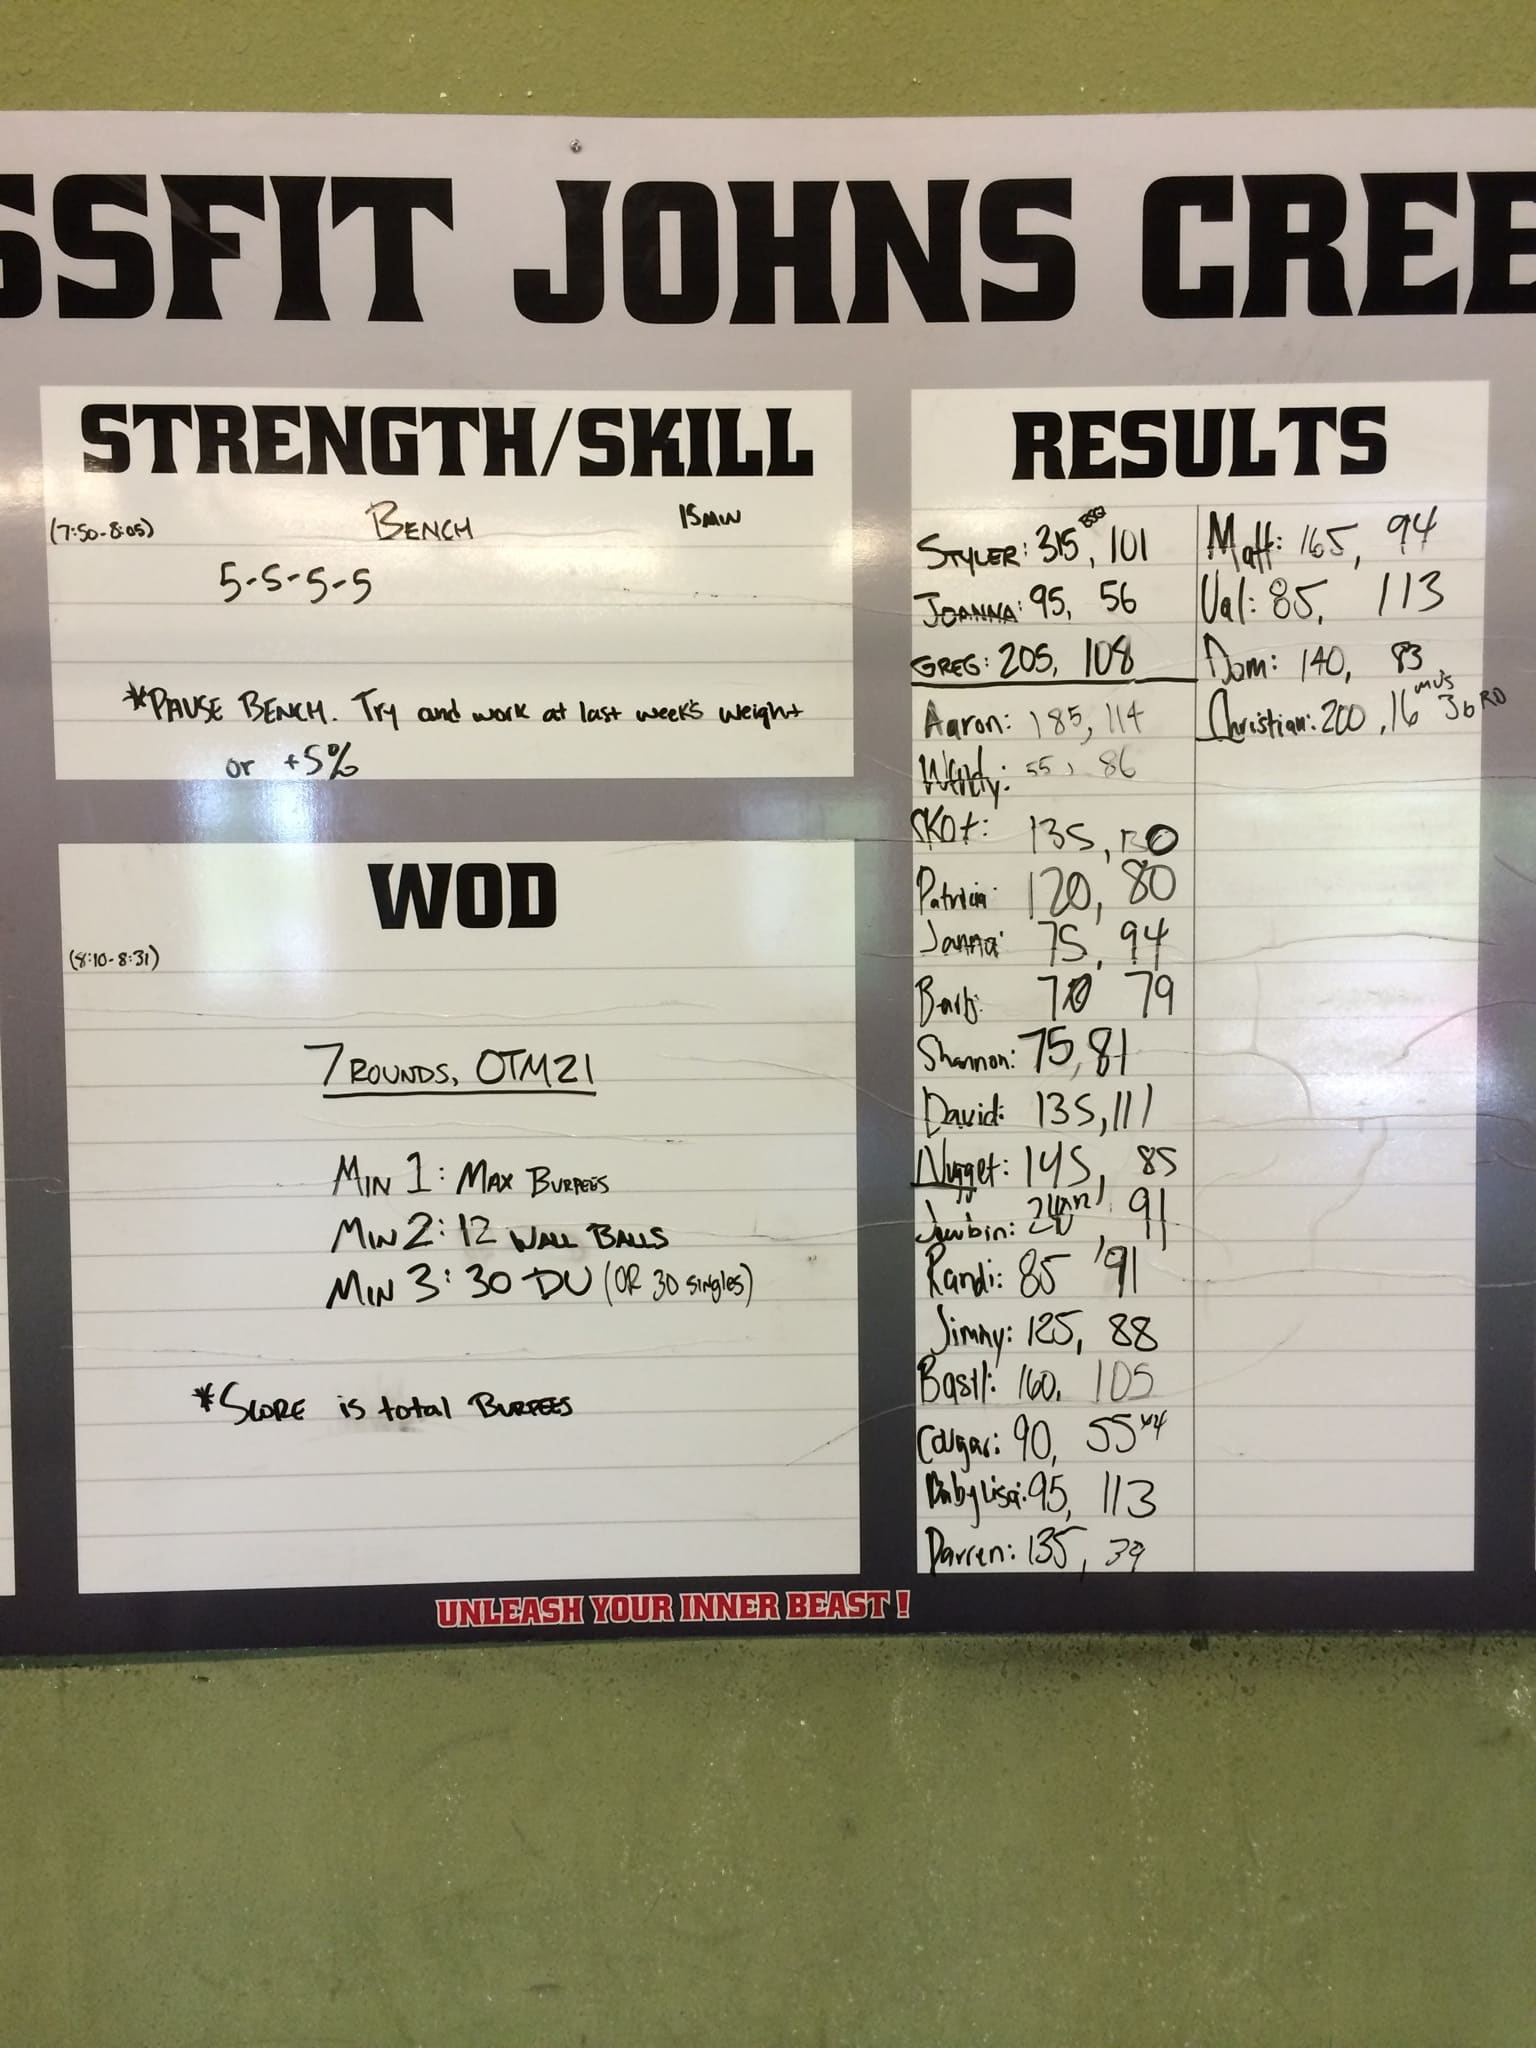 SSFIT JOHNS CREE
STRENGTH/SKILL
(7:50-8:05) BENCH 15 MIN
5-5-5-5
*PAUSE BENCH. Try and work at last week's weight
or +5%
WOD
(8:10-8:31)
7 ROUNDS, OTM21
MIN 1: MAX BURPEES
MIN 2: 12 WALL BALLS
MIN 3: 30 DU (OR 30 singles)
*SCORE is total BURPEES
RESULTS
STYLER: 315 BSQ, 101
JOANNA: 95, 56
GREG: 205, 108
Aaron: 185, 114
Wendy: 55, 86
SKOt: 135, 130
Patricia: 120, 80
Janna: 75, 94
Barb: 70 79
Shannon: 75, 81
David: 135, 111
Nugget: 145, 85
91
Randi: 85, 91
Jimmy: 125, 88
Basil: 160, 105
Cougar: 90, 55
Babylisa: 95, 113
Darren: 135, 39
Matt: 165, 94
Val: 85, 113
Dom: 140, 83
Christian: 200, 16 MU's
UNLEASH YOUR INNER BEAST!